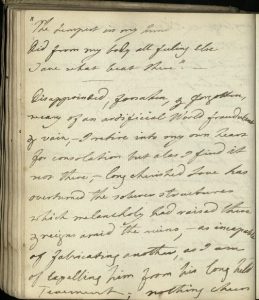 "The tempest in my mind
Did from my body all feeling else
Save what beat there" —
Disappointed, forsaken, & forgotten,
weary of an artificial World fraudulent
& vain, — I retire into my own heart
for consolation but alas I find it
not there — long cherished Love has
overturned the soberer structures
which melancholy had raised there
& reigns amid the ruins — as incapable
of fabricating another, as I am
of expelling him from his long held
Tenement; nothing cheers